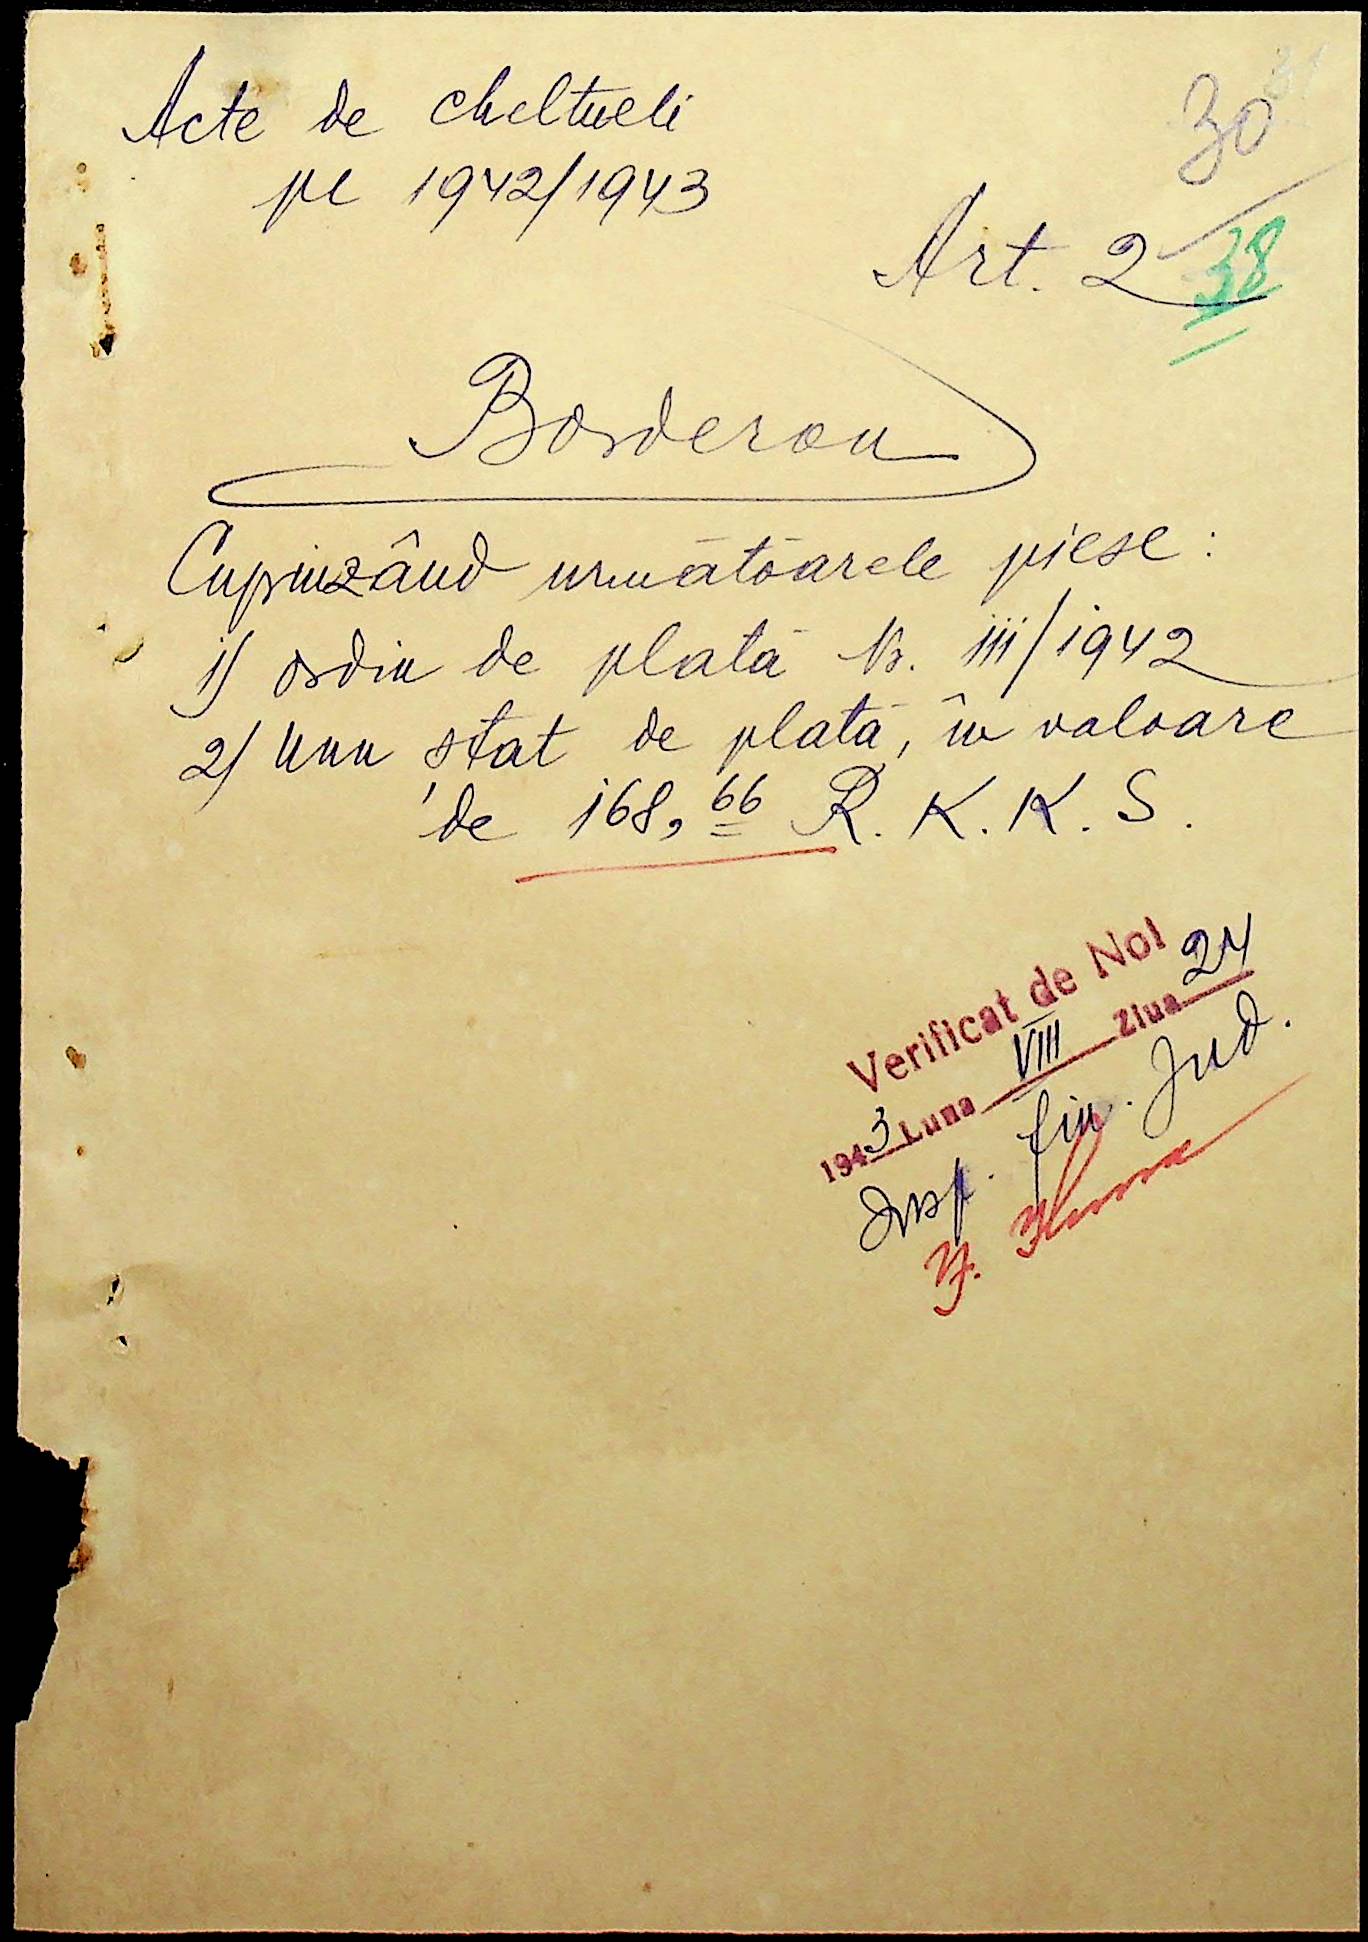 Acte de cheltueli
pe 1942/1943
31
30
Art. 2
38
Borderou
Cuprinzând următoarele piese :
1) ordin de plată Nr. 111/1942
2) Unu stat de plată, în valoare
de 168,66 R. K. K. S.
Verificat de Noi
1943 Luna VIII Ziua 24
Insp. fin. Jud.